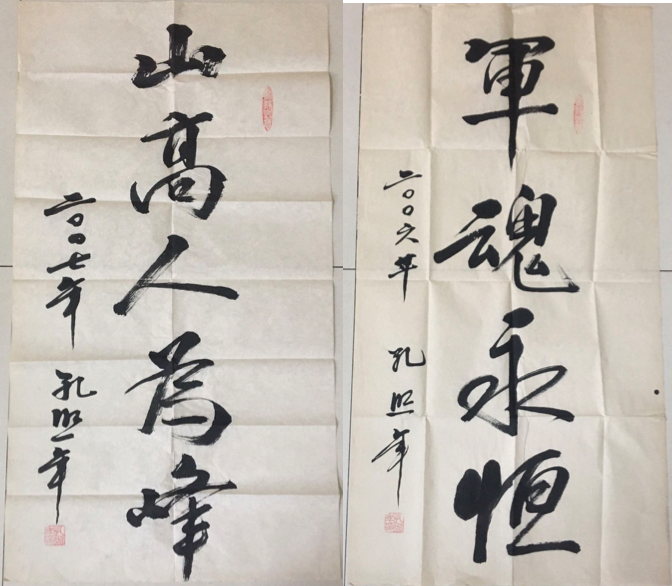 山高人为峰
二〇〇七年 孔照年
軍魂永恒
二〇〇六年 孔照年